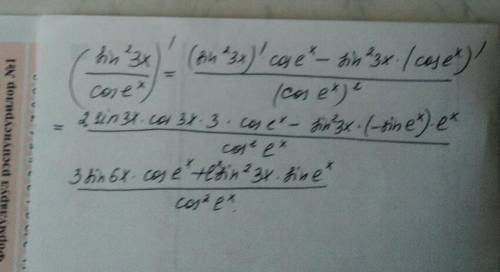 (sin²3x / cos eˣ)' = ((sin²3x)' cos eˣ − sin²3x · (cos eˣ)') / (cos eˣ)²
= (2 sin 3x · cos 3x · 3 · cos eˣ − sin²3x · (−sin eˣ) · eˣ) / cos² eˣ
(3 sin 6x · cos eˣ + eˣ sin² 3x · sin eˣ) / cos² eˣ